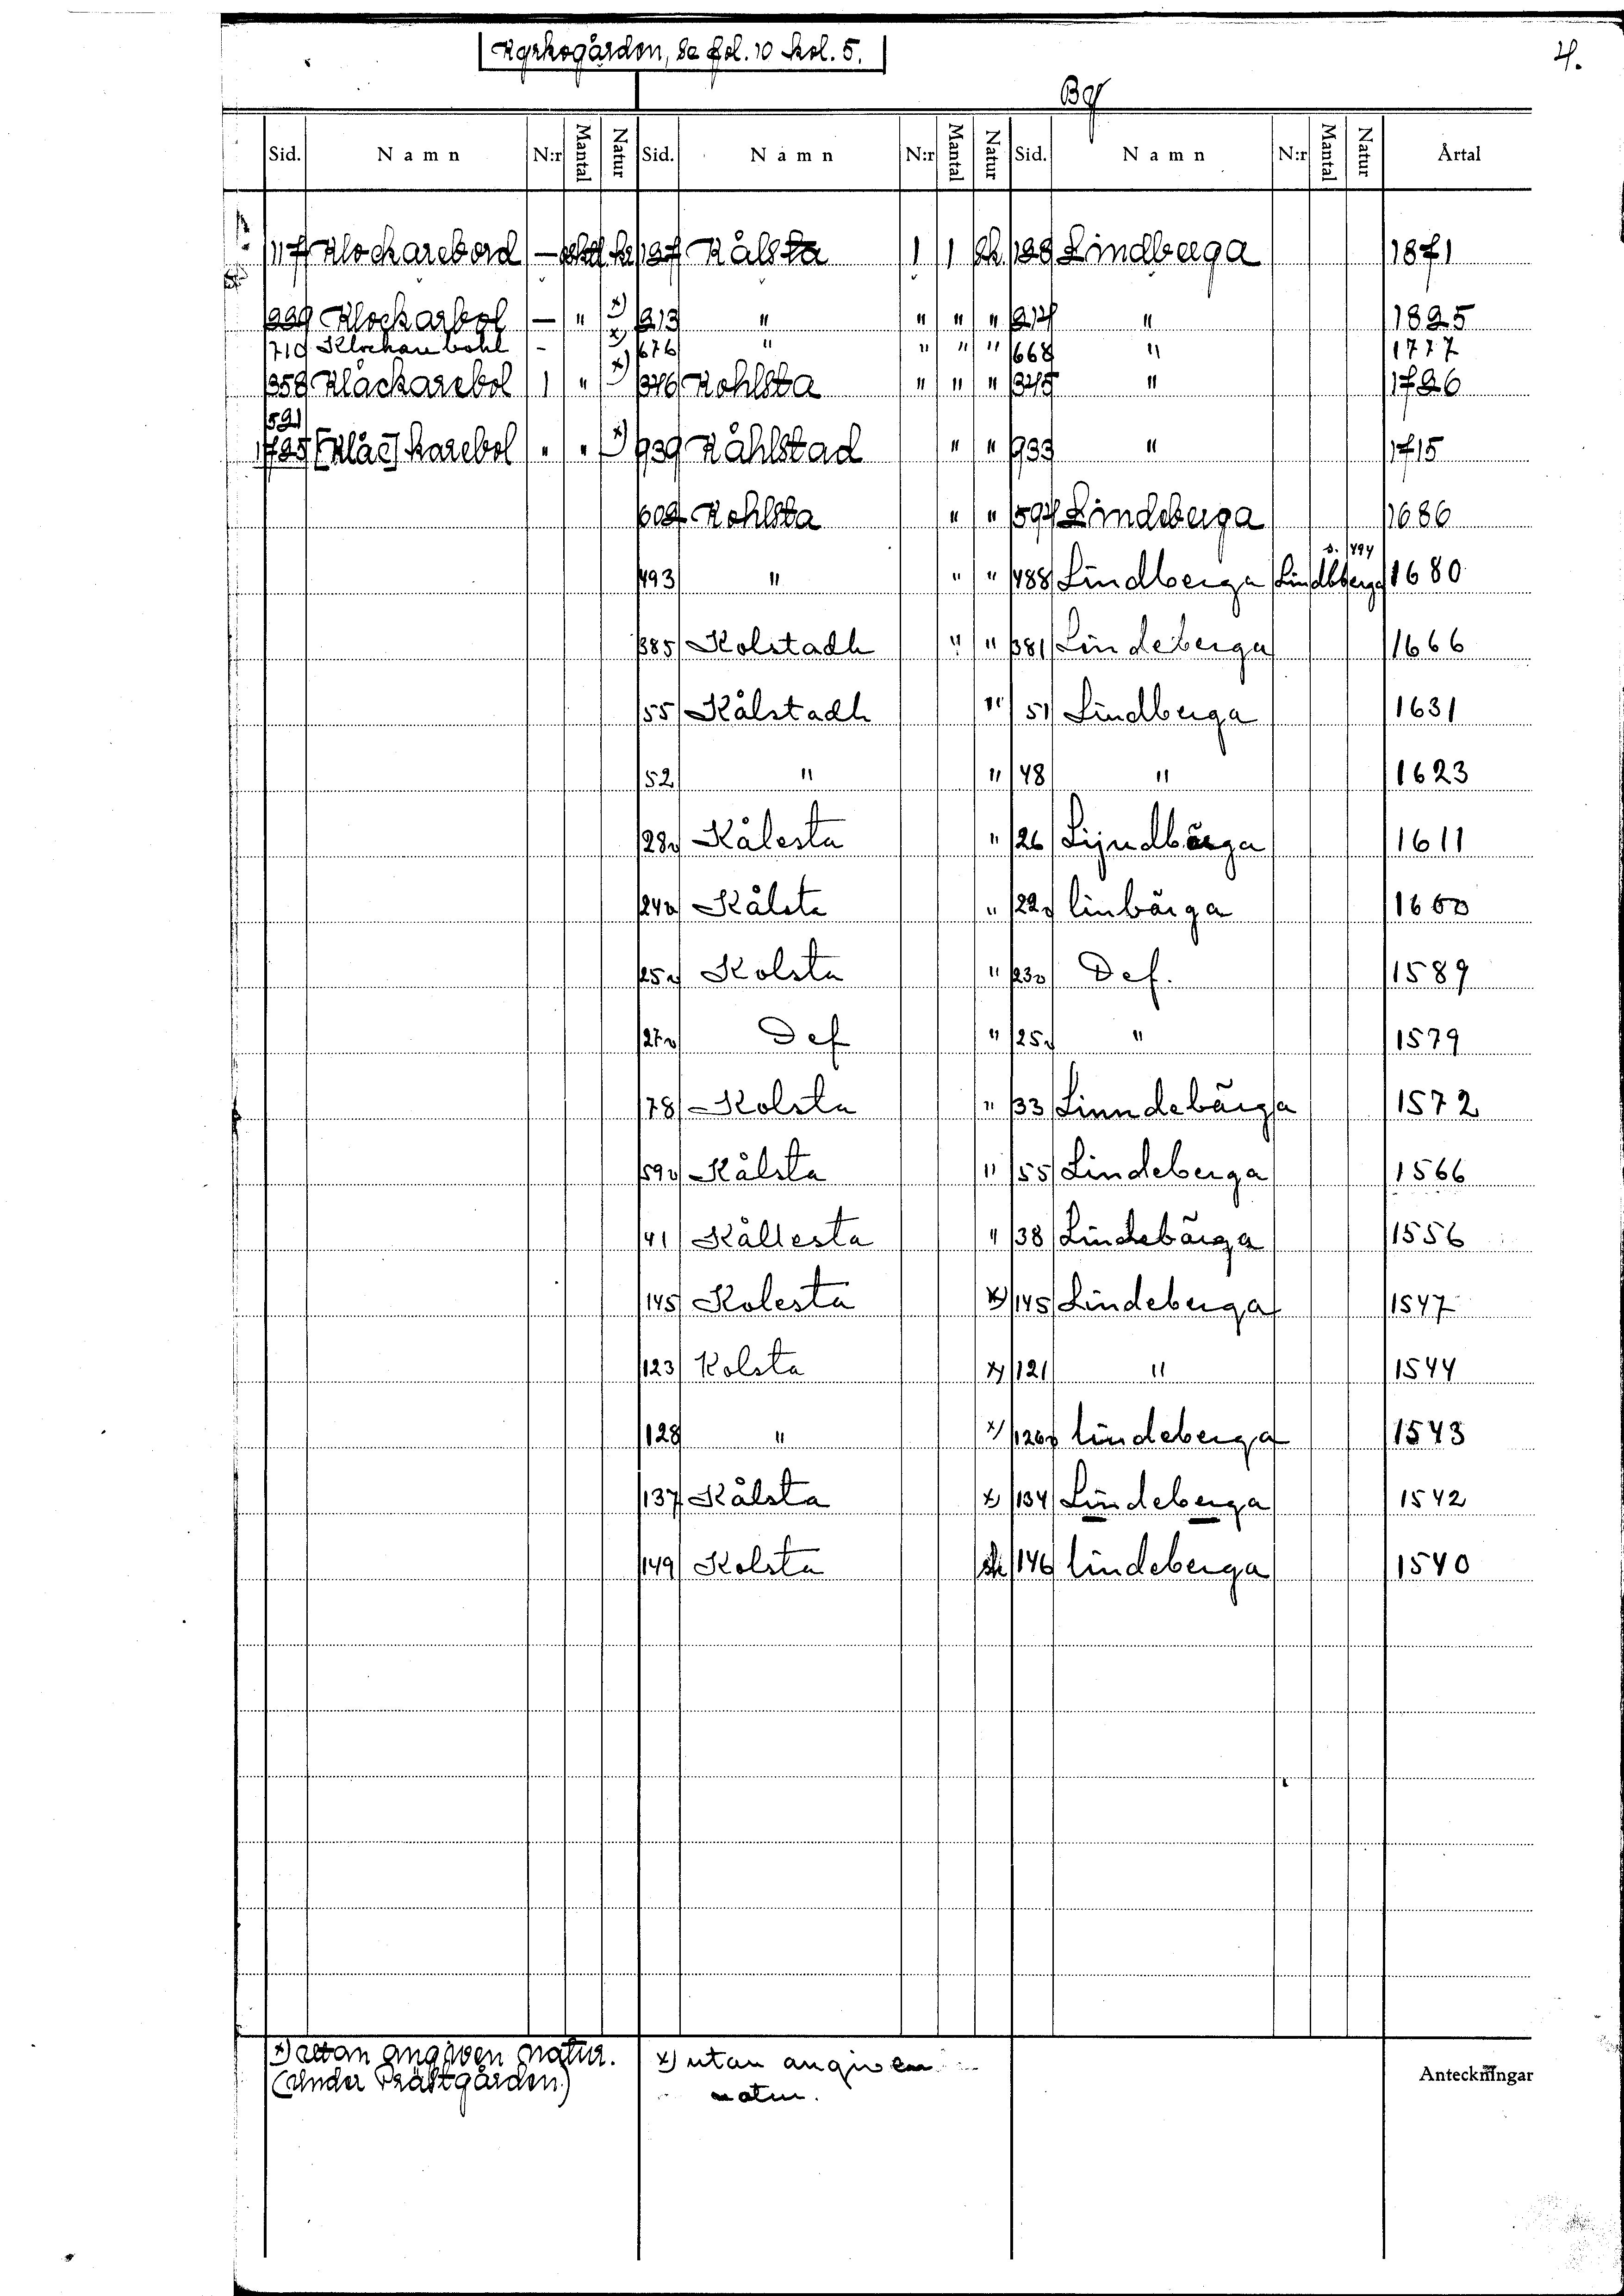 Kyrkogården, se fol. 10 kol. 5.
4.
Bg
Sid. Namn N:r Mantal Natur Sid. Namn N:r Mantal Natur Sid. Namn N:r Mantal Natur Årtal
117 Klockarebord — kr 127 Kålsta 1 1 sk 128 Lindberga 1871
229 Klockarbol — " x) 213 " " " " 214 " 1825
710 Klockare bohl - x) 676 " " " " 668 " 1777
358 Klåckarebol 1 " x) 346 Kohlsta " " " 345 " 1726
521
1725 [Klåc]karebol " " x) 939 Kåhlstad " " 933 " 1715
602 Kohlsta " " 594 Lindeberga 1686
s. 494
493 " " " 488 Lindberga Lindbberga 1680
385 Kolstadh " " 381 Lindeberga 1666
55 Kålstadh " 51 Lindberga 1631
52 " " 48 " 1623
28v Kålesta " 26 Lijndbärga 1611
24v Kålsta " 22v linbärga 1600
25v Kolsta " 23v Def. 1589
27v Def " 25v " 1579
78 Kolsta " 33 Linndebärga 1572
59v Kålsta " 55 Lindeberga 1566
41 Kållesta " 38 Lindebärga 1556
145 Kolesta x) 145 Lindeberga 1547
123 Kolsta x) 121 " 1544
128 " x) 126v lindeberga 1543
137 Kålsta x) 134 Lindeberga 1542
149 Kolsta sk 146 lindeberga 1540
x) utan angiven natur.
(Under Prästgården.)
x) utan angiven
natur.
Anteckningar